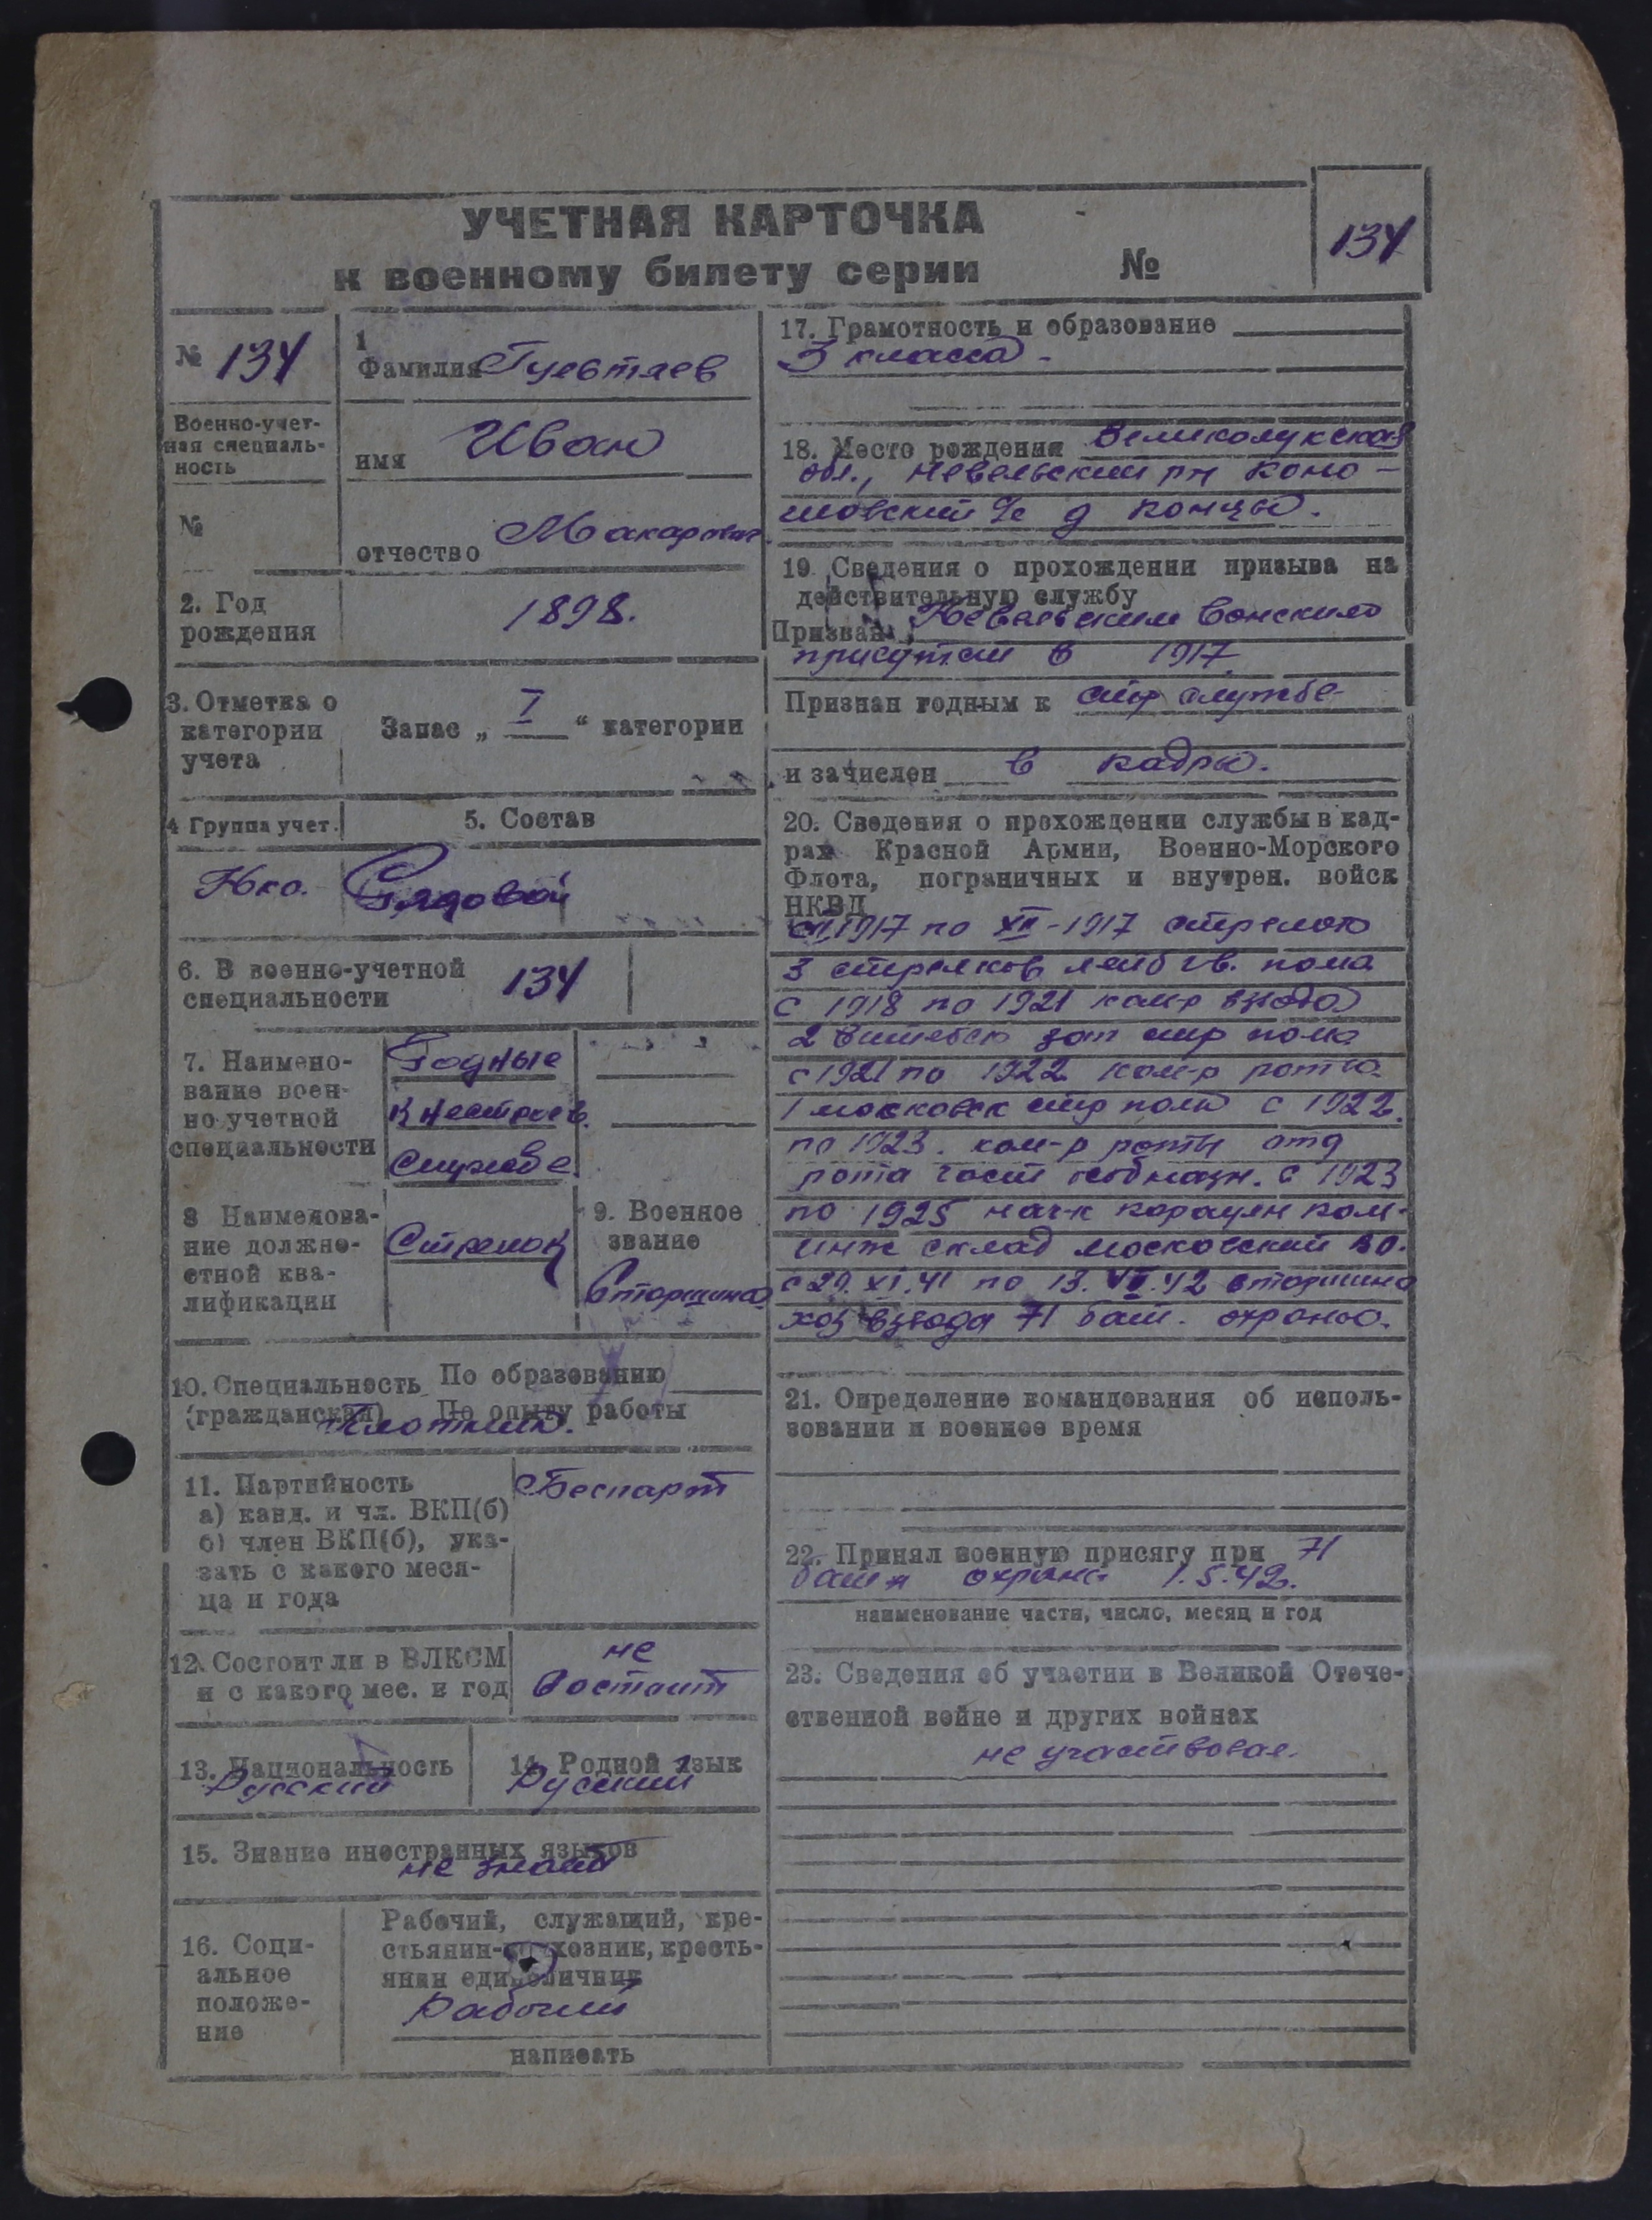 УЧЕТНАЯ КАРТОЧКА
к военному билету серии №
134
№ 134
Военно-учет-
ная специаль-
ность
№
1
Фамилия
имя Иван
отчество Макарович
2. Год
рождения
1898.
3. Отметка о
категории
учета
Запас „ I “ категории
4 Группа учет.
5. Состав
Рядовой
6. В военно-учетной
специальности
134
7. Наимено-
вание воен-
но учетной
специальности
Годные
к нестроев.
службе
8 Наименова-
ние должно-
стной ква-
лификации
Стрелок
9. Военное
звание
Старшина
10. Специальность
(гражданская)
По образованию
По опыту работы
Плотник.
11. Партийность
а) канд. и чл. ВКП(б)
б) член ВКП(б), ука-
зать с какого меся-
ца и года
Беспарт
12. Состоит ли в ВЛКСМ
и с какого мес. и год
не
состоит
13. Национальность
Русский
14. Родной язык
Русский
15. Знание иностранных языков
не знает
16. Соци-
альное
положе-
ние
Рабочий, служащий, кре-
стьянин-колхозник, кресть-
янин единоличник
Рабочий
написать
17. Грамотность и образование
3 класса
18. Место рождения Великолукская
обл., Невельский рн
д Концы.
19. Сведения о прохождении призыва на
действительную службу
Призван Невельским Воинским
присутств в 1917
Признан годным к стр службе
и зачислен в кадры.
20. Сведения о прохождении службы в кад-
рах Красной Армии, Военно-Морского
Флота, пограничных и внутрен. войск
НКВД
1917 по XII-1917 стрелок
3 стрелков лейб гв. полка
с 1918 по 1921 ком-р взвода
2 Витебск зап стр полка
с 1921 по 1922 ком-р роты
1 московск стр полк с 1922.
по 1923. ком-р роты отд
рота част особ назн. с 1923
по 1925 нач-к караулн ком.
инж склад Московский ВО.
с 29.XI.41 по 13.VII.42 старшина
хоз взвода 71 бат. охраны.
21. Определение командования об исполь-
зовании и военное время
22. Принял военную присягу при 71
бат-н охраны 1.5.42.
наименование части, число, месяц и год
23. Сведения об участии в Великой Отече-
ственной войне и других войнах
не участвовал.